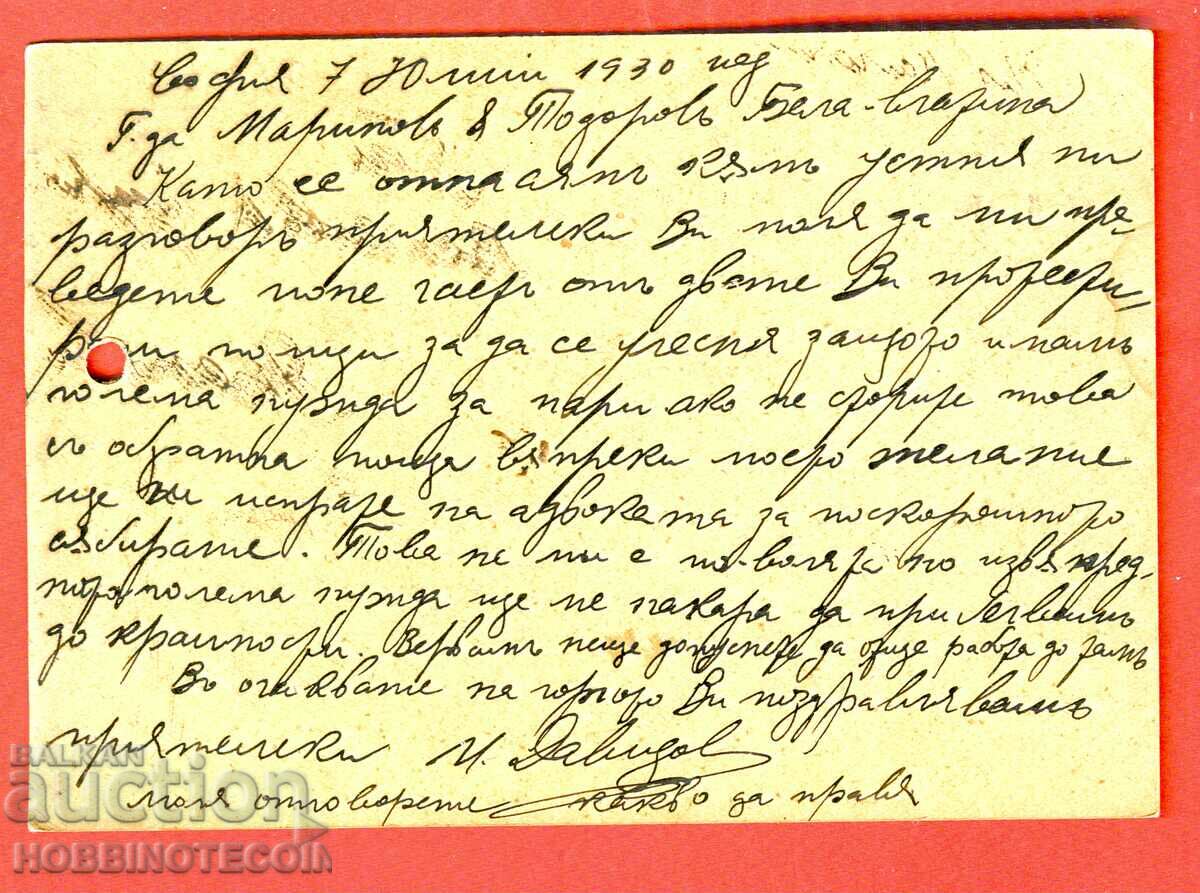 София 7 Юлий 1930 год
Г-да Мариновъ & Тодоровъ Бела-Слатина
Като се отнасямъ къмъ устния ни
разговоръ приятелски Ви моля да ми пре-
ведете поне часть отъ двете Ви протести-
рани полици за да се улесня защото имамъ
голема нужда за пари ако не сторите това
съ обратна поща въпреки моето желание
ще ги испратя на адвоката за по скорошното
събиране. Това не ми е по-волята но извънред-
ната голема нужда ще ме накара да прибегвамъ
до крайности. Вервамъ неще допуснете да отиде работа до там
Въ очакване на горното Ви поздравлявамъ
приятелски И. Давидов
моля отговорете какво да правя
BALKAN
auction
HOBBINOTECOIN